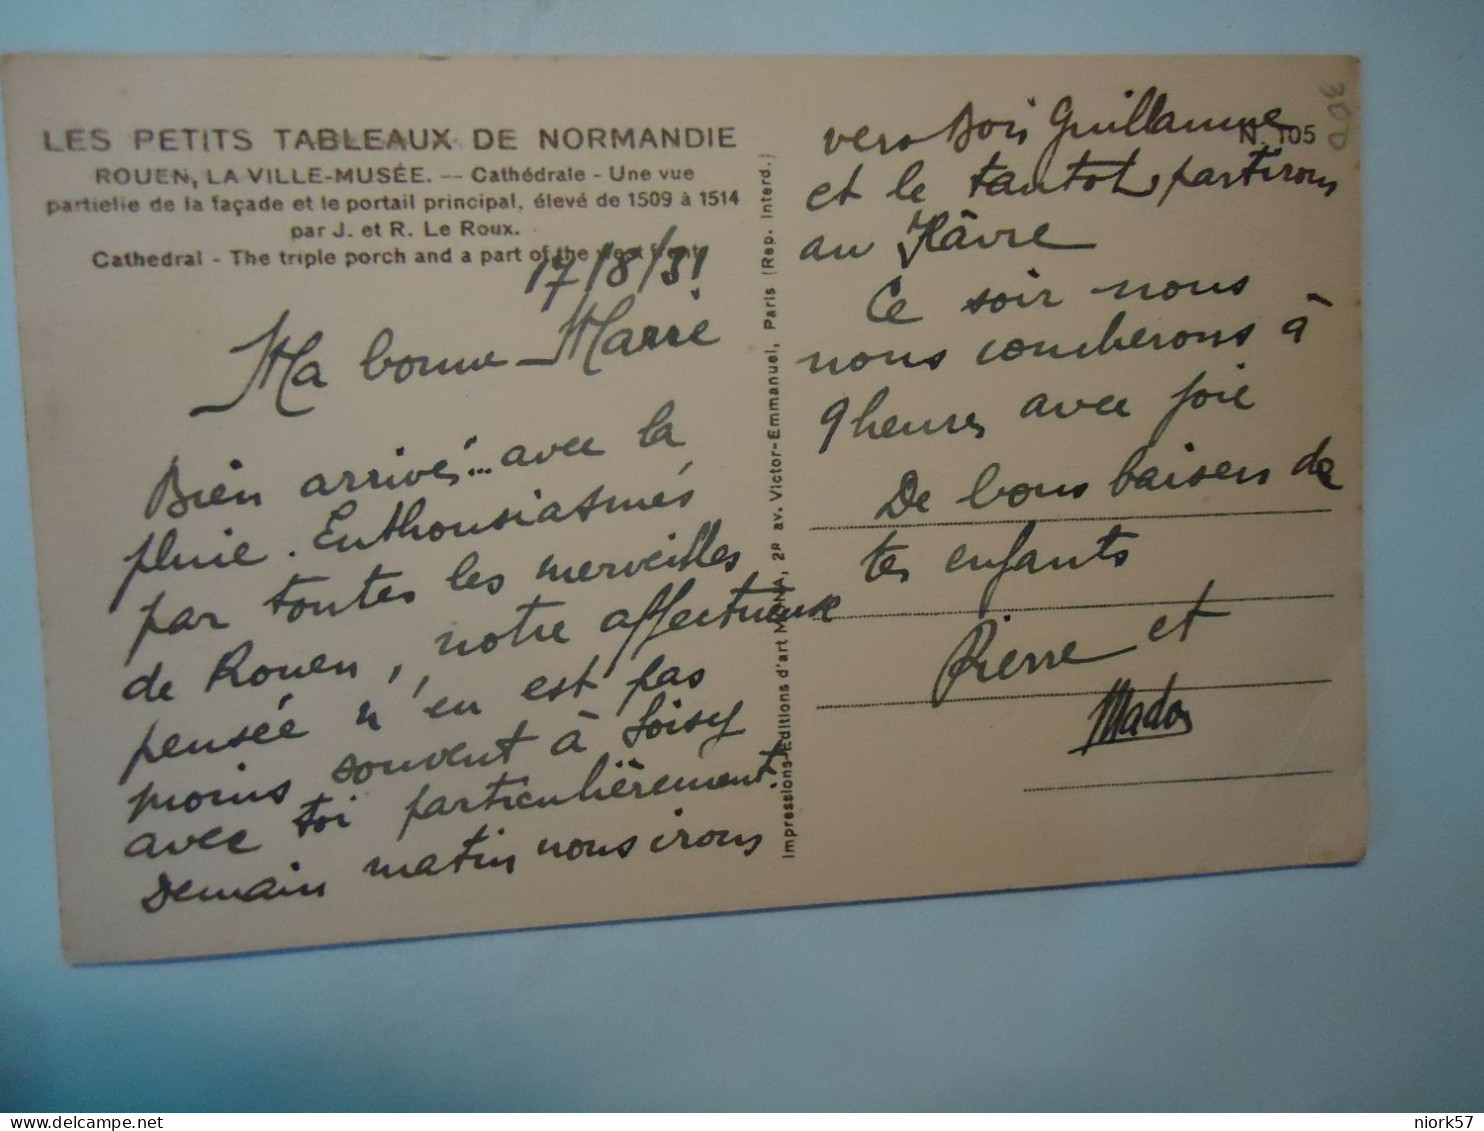 LES PETITS TABLEAUX DE NORMANDIE
ROUEN, LA VILLE-MUSÉE. — Cathédrale - Une vue
partielle de la façade et le portail principal, élevé de 1509 à 1514
par J. et R. Le Roux.
Cathedral - The triple porch and a part of the west front
17/8/31
Ma bonne Marie
Bien arrivés... avec la
pluie. Enthousiasmés
par toutes les merveilles
de Rouen, notre affectueuse
pensée n'en est pas
moins souvent à Soisy
avec toi particulièrement.
Demain matin nous irons
Impressions-Editions d'art MONA, av. Victor-Emmanuel, Paris (Rep. Interd.)
N. 105
300
vers Bois Guillaume
et le tantôt partirons
au Hâvre
Ce soir nous
nous coucherons à
9 heures avec joie
De bons baisers de
tes enfants
Pierre et
Mado
niork57